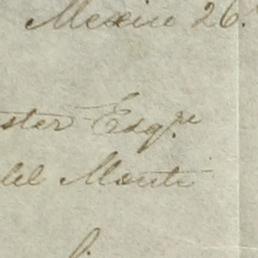 Mexico 26
ster Esqre
del Monte